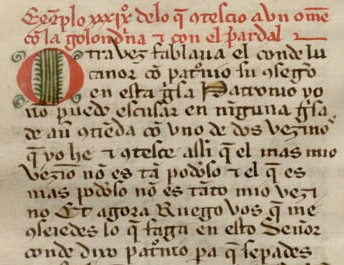 Exenplo xxxixº de lo q̃ contesçio a vn ome
cõ la golondrina & con el pardal
Otra vez fablaua el conde lu
canor cõ patronio su cõsegero
en esta gisa Patronio yo
no puedo escusar en ninguna gisa
de aũ contienda cõ vno de dos vezinos
q̃ yo he & contesçe assi q̃ el mas mio
vezino nõ es tã podroso & el q̃ es
mas podroso nõ es tãto mio vezi
no Et agora Ruego vos q̃ me
cõsejedes lo q̃ faga en esto Señor
conde dixo patronio pa q̃ sepades